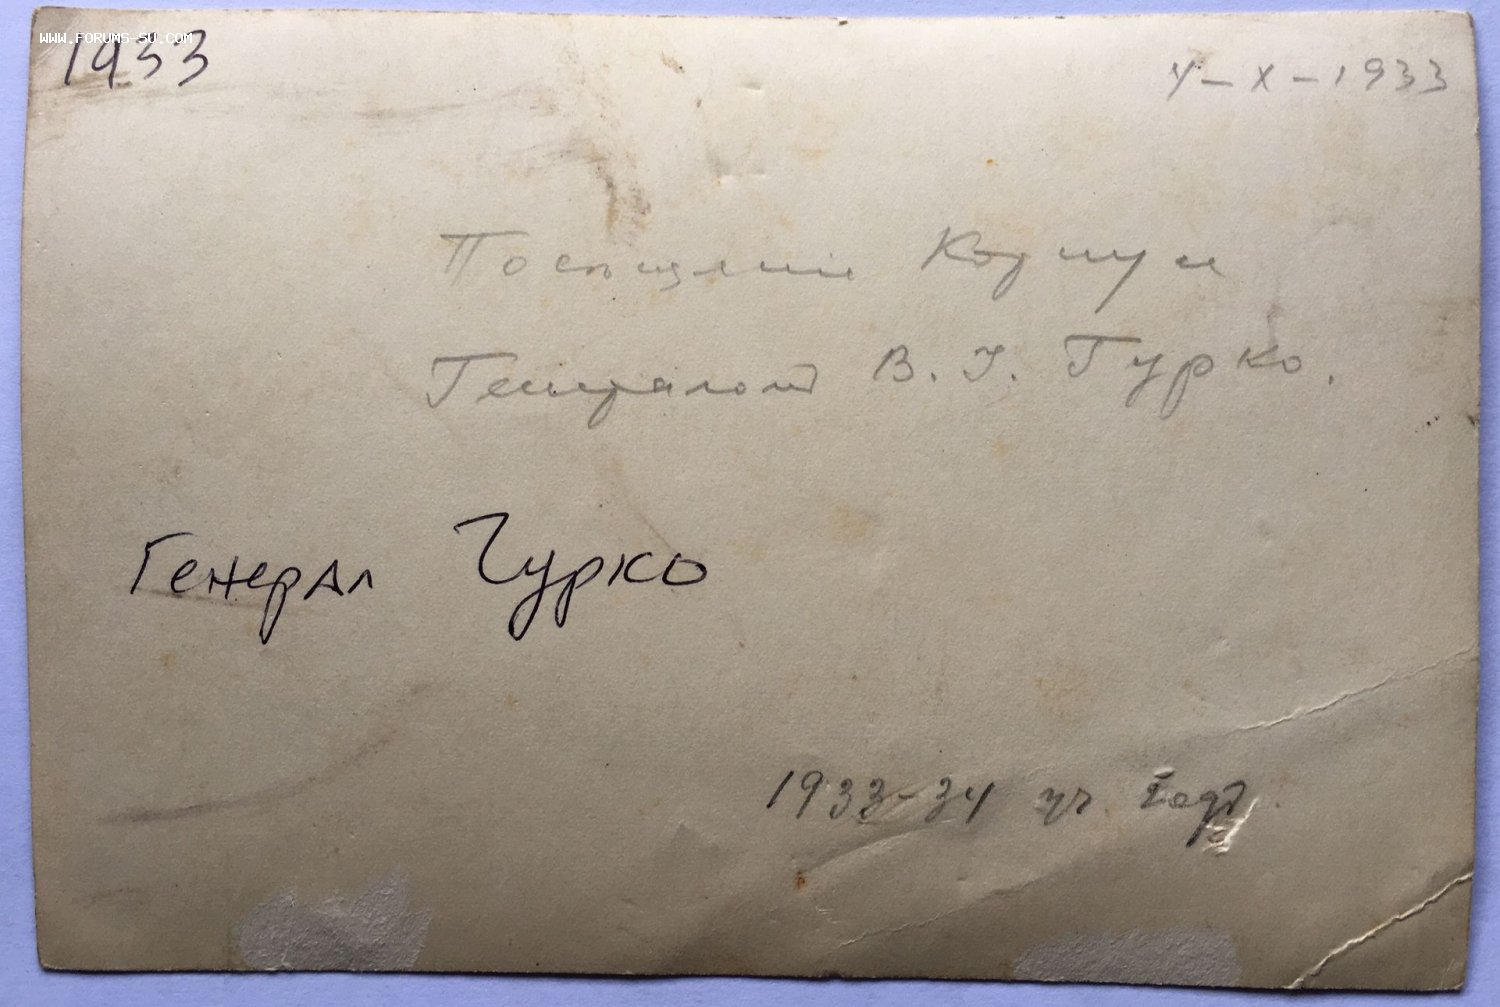 WWW.FORUMS-SU.COM
1933
4-X-1933
Посѣщеніе Корпуса
Генераломъ В. І. Гурко.
Генерал Гурко
1933-34 уч. годъ.